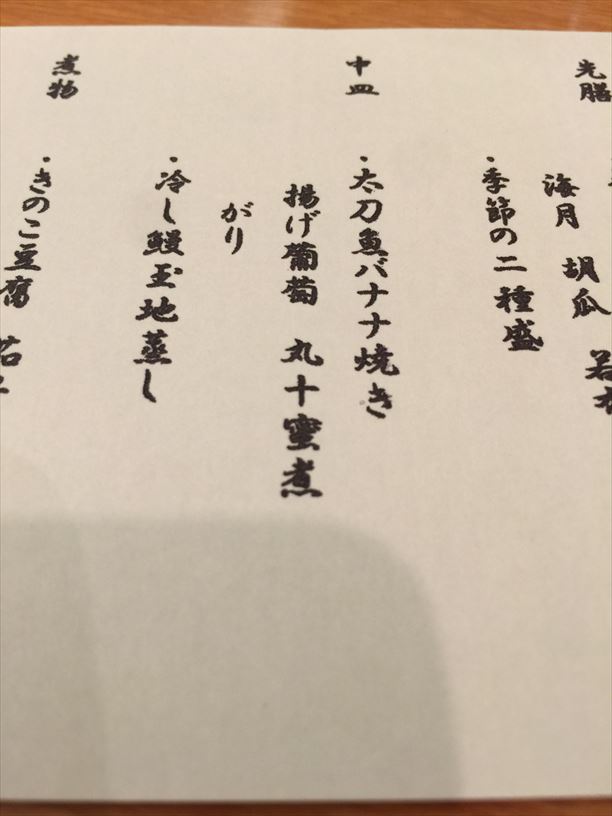 海月 胡瓜 若
・季節の二種盛
中皿
・太刀魚バナナ焼き
揚げ葡萄 丸十蜜煮
がり
・冷し鰻玉地蒸し
煮物
・きのこ豆腐